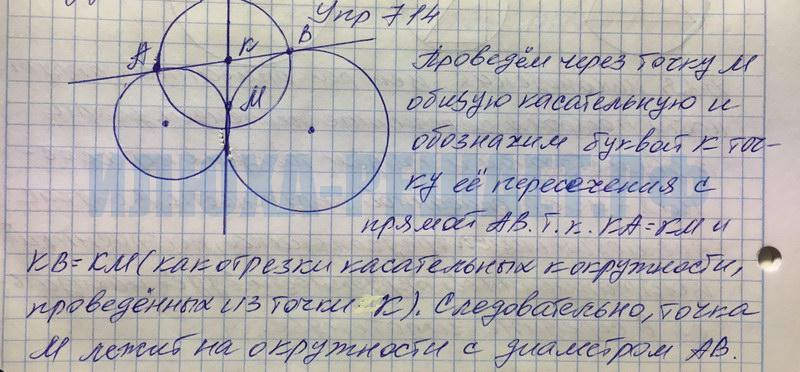 Упр 714
А К В
М
Проведём через точку М
общую касательную и
обозначим буквой К точ-
ку её пересечения с
прямой АВ. Т.к. КА=КМ и
КВ=КМ (как отрезки касательных к окружности,
проведённых из точки К). Следовательно, точка
М лежит на окружности с диаметром АВ.